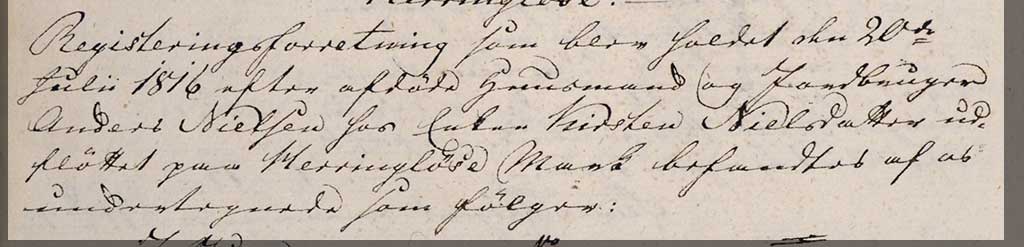 Herringløse.
Registeringsforretning som blev holdet den 20de
Julii 1816 efter afdöde Huusmand og Jordbruger
Anders Nielsen hos Enken Kirsten Nielsdatter ud-
flöttet paa Herringlöse Mark befandtes af os
undertegnede som fölger: